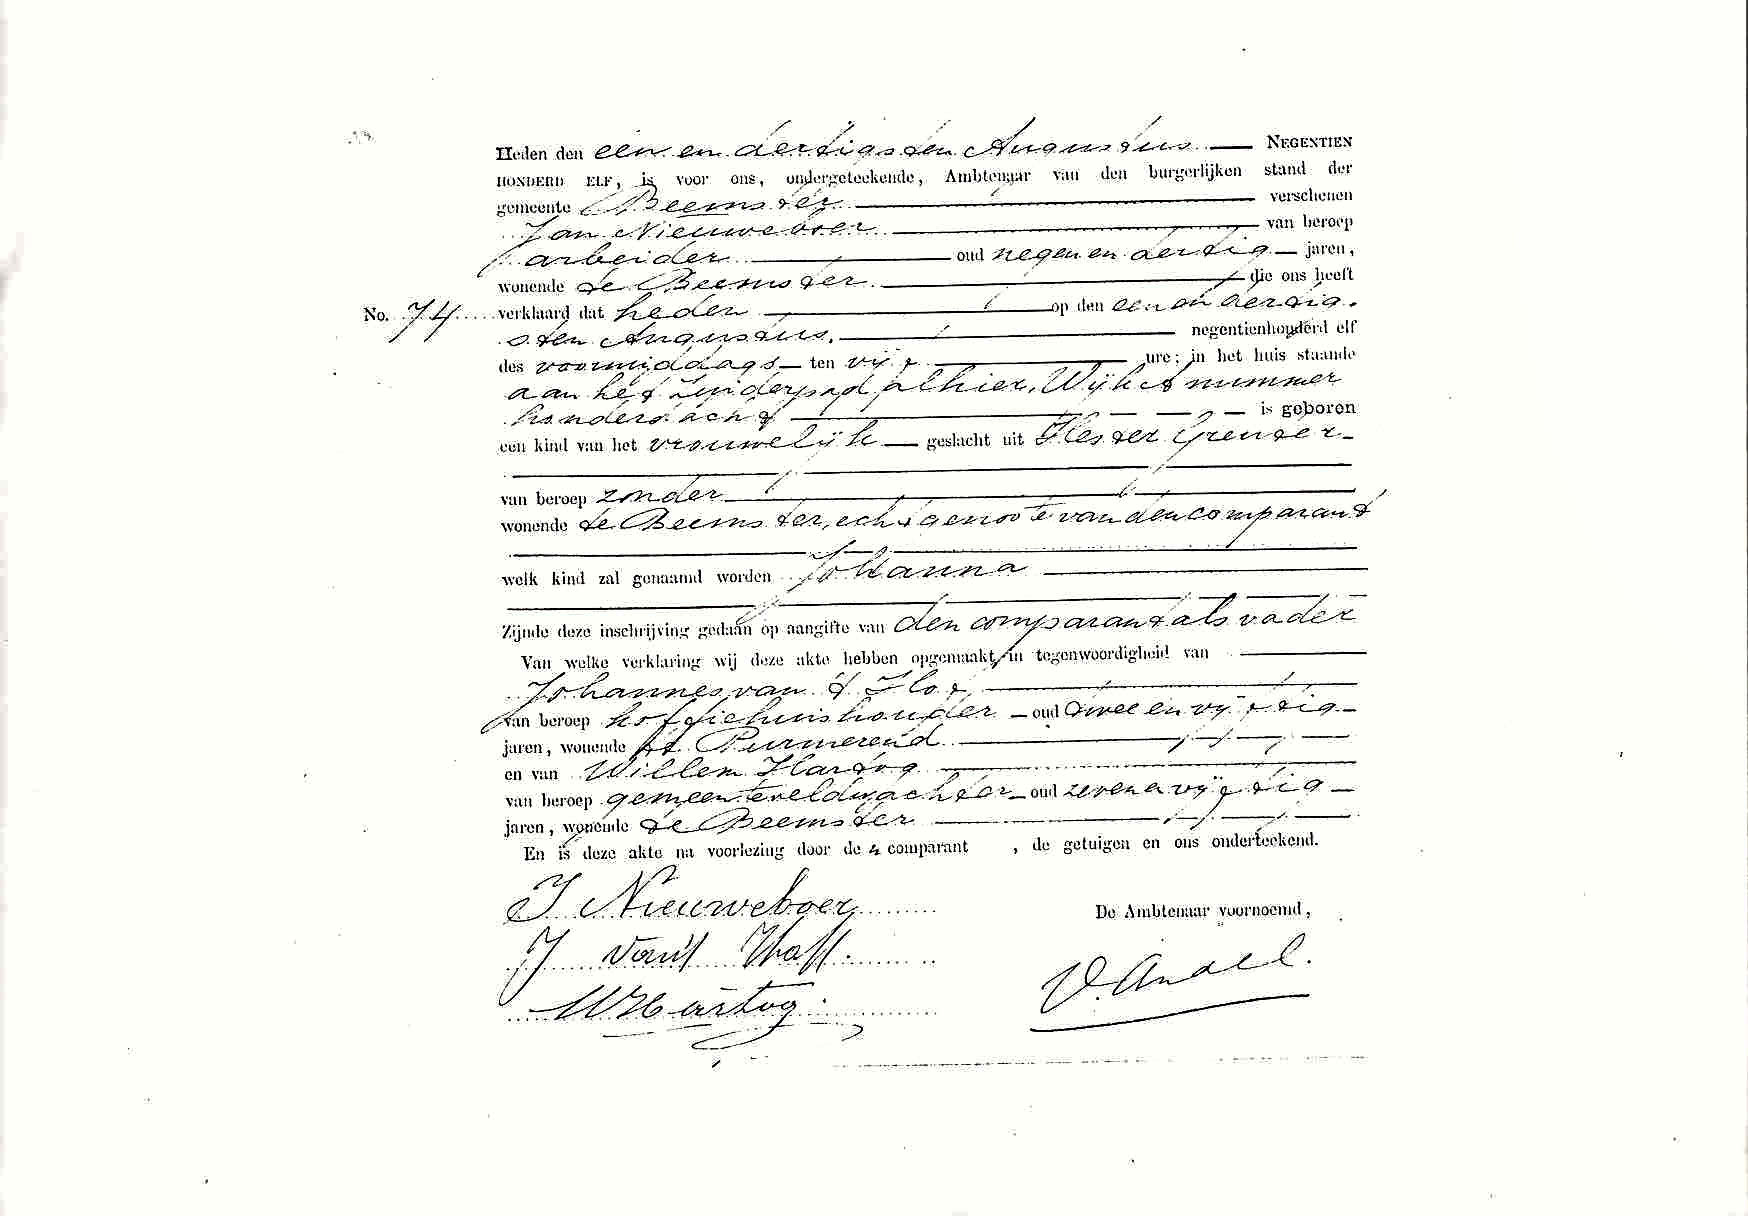 Heden den een en dertigsten Augustus NEGENTIEN
HONDERD ELF, is voor ons, ondergeteekende, Ambtenaar van den burgerlijken stand der
gemeente Beemster verschenen
Jan Nieuweboer van beroep
arbeider oud negen en dertig jaren,
wonende te Beemster die ons heeft
No. 74 verklaard dat heden op den een en dertig-
sten Augustus, negentienhonderd elf
des voormiddags ten vijf ure; in het huis staande
aan het Zuiderpad alhier, Wijk A nummer
honderd acht is geboren
een kind van het vrouwelijk geslacht uit Hester Greuter
van beroep zonder
wonende te Beemster, echtgenoote van den comparant
welk kind zal genaamd worden Johanna
Zijnde deze inschrijving gedaan op aangifte van den comparant als vader
Van welke verklaring wij deze akte hebben opgemaakt, in tegenwoordigheid van
Johannes van 't Hof,
van beroep koffiehuishouder oud twee en vijftig
jaren, wonende te Purmerend
en van Willem Hartog
van beroep gemeenteveldwachter oud zeven en vijftig
jaren, wonende te Beemster
En is deze akte na voorlezing door den comparant, de getuigen en ons onderteekend.
J Nieuweboer
De Ambtenaar voornoemd,
J van't Hoff.
V. Andel.
W Hartog.